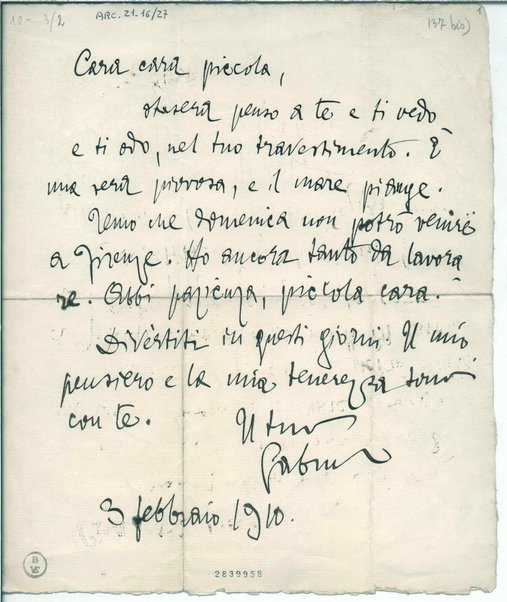 10 - 3/2
ARC. 21. 16/27
137 bis)
1
Cara cara piccola,
stasera penso a te e ti vedo
e ti odo, nel tuo travestimento. È
una sera piovosa, e il mare piange.
Temo che domenica non potrò venire
a Firenze. Ho ancora tanto da lavora
re. Abbi pazienza, piccola cara.
Divertiti in questi giorni. Il mio
pensiero e la mia tenerezza sono
con te.
Il tuo
Gabri
3 febbraio 1910.
B
VE
2839958